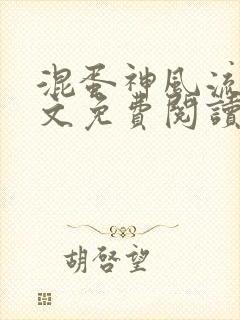 混蛋神風流
文免費閱讀
胡啓望